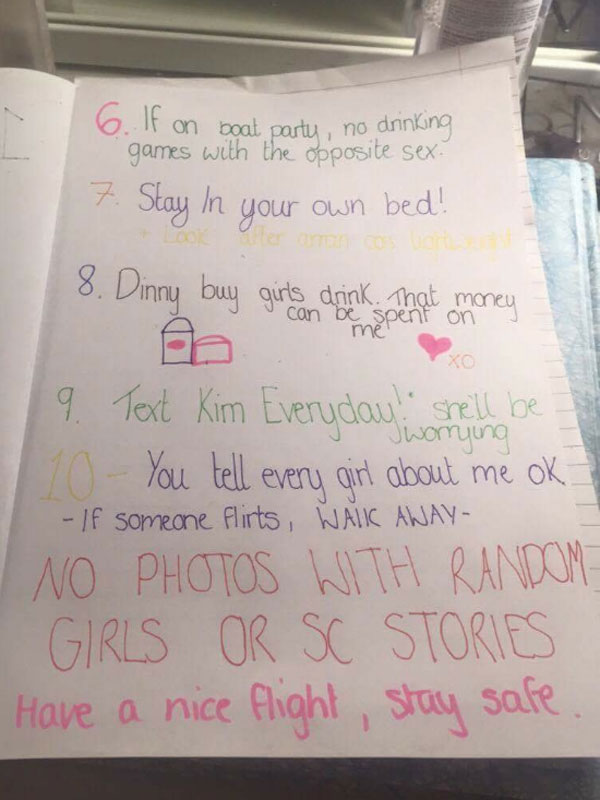 6. If on boat party, no drinking
games with the opposite sex.
7. Stay In your own bed!
+ Look after arran cos lightweight
8. Dinny buy girls drink. That money
can be spent on
me
XO
9. Text Kim Everyday! she'll be
worrying
10 - You tell every girl about me OK
- If someone flirts, WALK AWAY-
NO PHOTOS WITH RANDOM
GIRLS OR SC STORIES
Have a nice flight, stay safe.